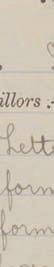 illors :-
Lett
form
form